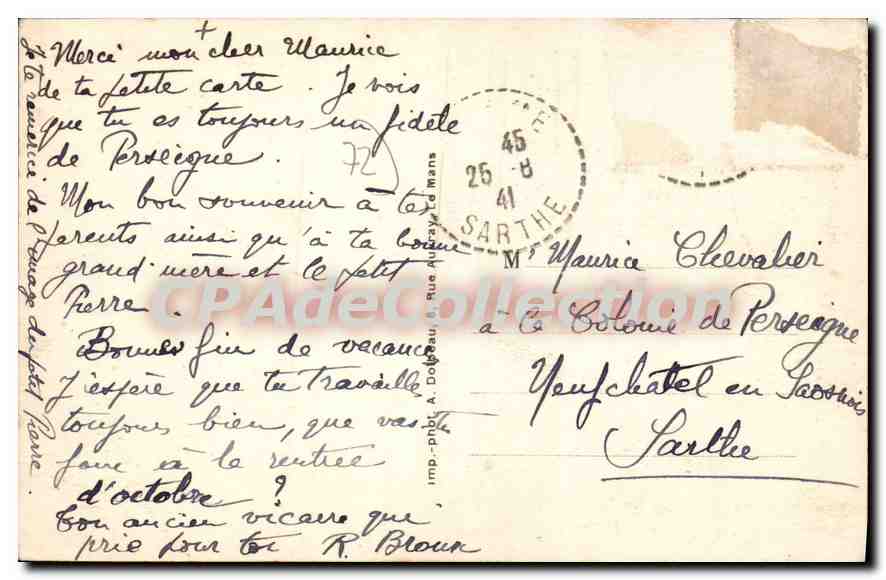 +
Merci mon cher Maurice
de ta petite carte. Je vois
que tu es toujours un fidèle
de Perseigne.
72
Mon bon souvenir à tes
parents ainsi qu'à ta bonne
grand'mère et le petit
Pierre.
Bonnes fin de vacances
J'espère que tu travailles
toujours bien, que vas-tu
faire à la rentrée
d'octobre ?
Ton ancien vicaire qui
prie pour toi R.
Je te remercie de l'image du petit Pierre.
Imp.-phot. A. Dolbeau, 6, Rue Auvray, Le Mans
45
25 -8
41
SARTHE
M' Maurice Chevalier
à la Colonie de Perseigne
Neufchatel en Saosnois
Sarthe
CPAdeCollection